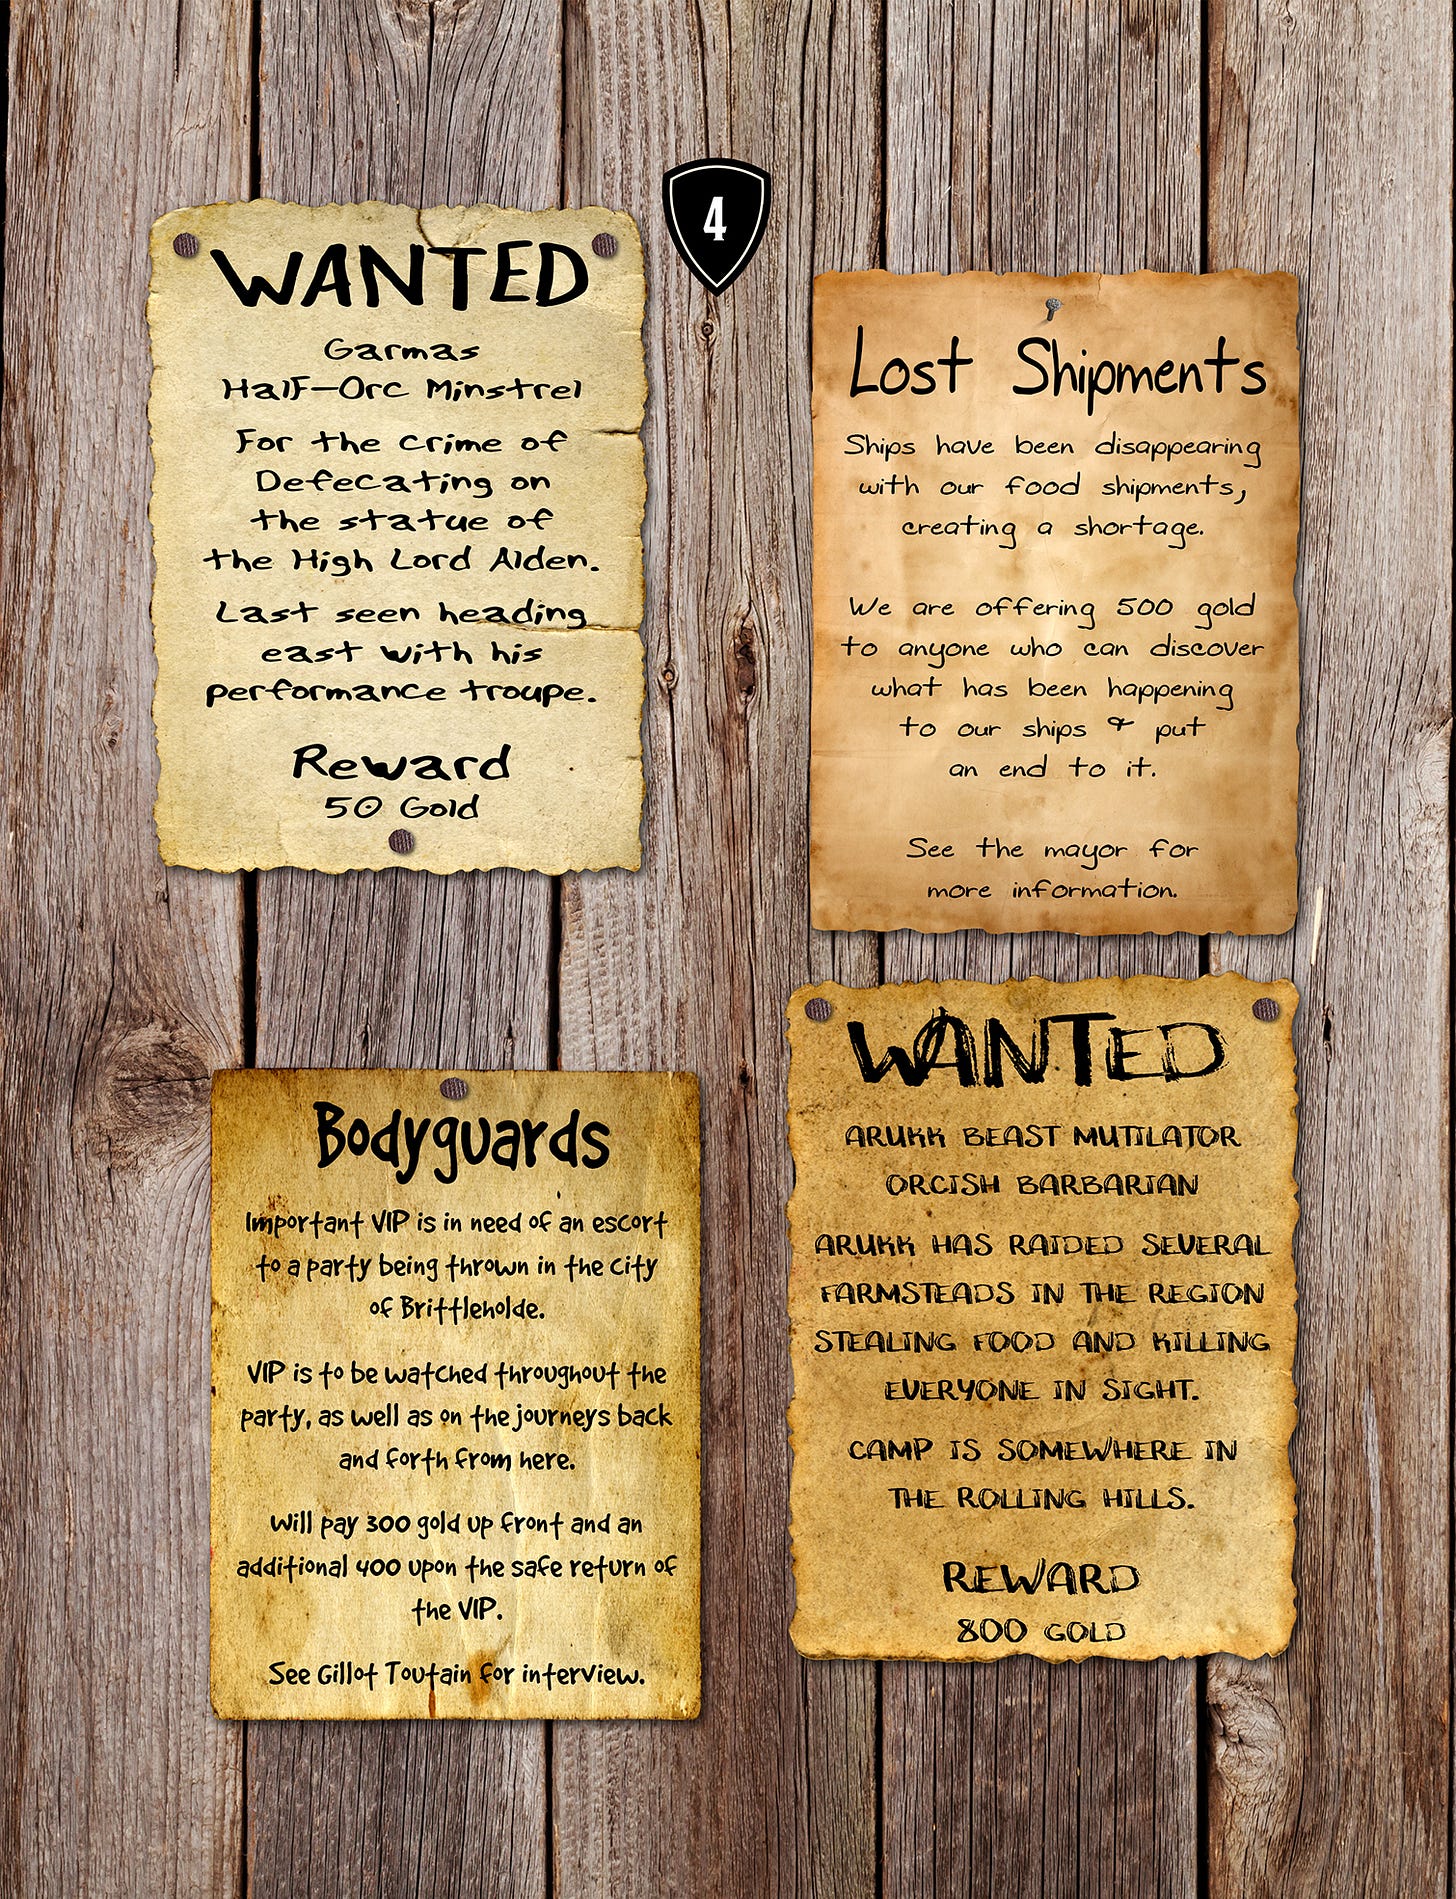 4
WANTED
Garmas
Half-Orc Minstrel
For the crime of
Defecating on
the statue of
the High Lord Alden.
Last seen heading
east with his
performance troupe.
Reward
50 Gold
Lost Shipments
Ships have been disappearing
with our food shipments,
creating a shortage.
We are offering 500 gold
to anyone who can discover
what has been happening
to our ships & put
an end to it.
See the mayor for
more information.
Bodyguards
Important VIP is in need of an escort
to a party being thrown in the city
of Brittleholde.
VIP is to be watched throughout the
party, as well as on the journeys back
and forth from here.
Will pay 300 gold up front and an
additional 400 upon the safe return of
the VIP.
See Gillot Toutain for interview.
WANTED
ARUKK BEAST MUTILATOR
ORCISH BARBARIAN
ARUKK HAS RAIDED SEVERAL
FARMSTEADS IN THE REGION
STEALING FOOD AND KILLING
EVERYONE IN SIGHT.
CAMP IS SOMEWHERE IN
THE ROLLING HILLS.
REWARD
800 GOLD